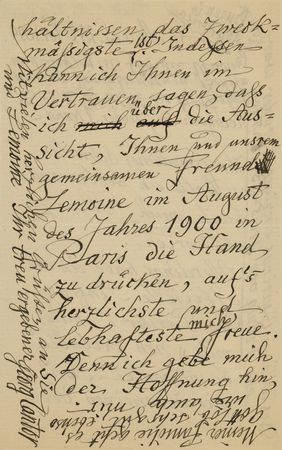 hältnissen das Zweck-
mäßigste ist. Indessen
kann ich Ihnen im
Vertrauen sagen, daß
ich mich auf über die Aus-
sicht, Ihnen und unsrem
gemeinsamen Freunde
Lemoine im August
des Jahres 1900 in
Paris die Hand
zu drücken, auf's
herzlichste und
lebhafteste mich freue.
Denn ich gebe mich
der Hoffnung hin,
um
Meiner Familie geht es
Gott lob sehr gut ebenso
mir.
Mit vielen herzlichen Grüßen an Sie
und Lemoine Ihr treu ergebener Georg Cantor